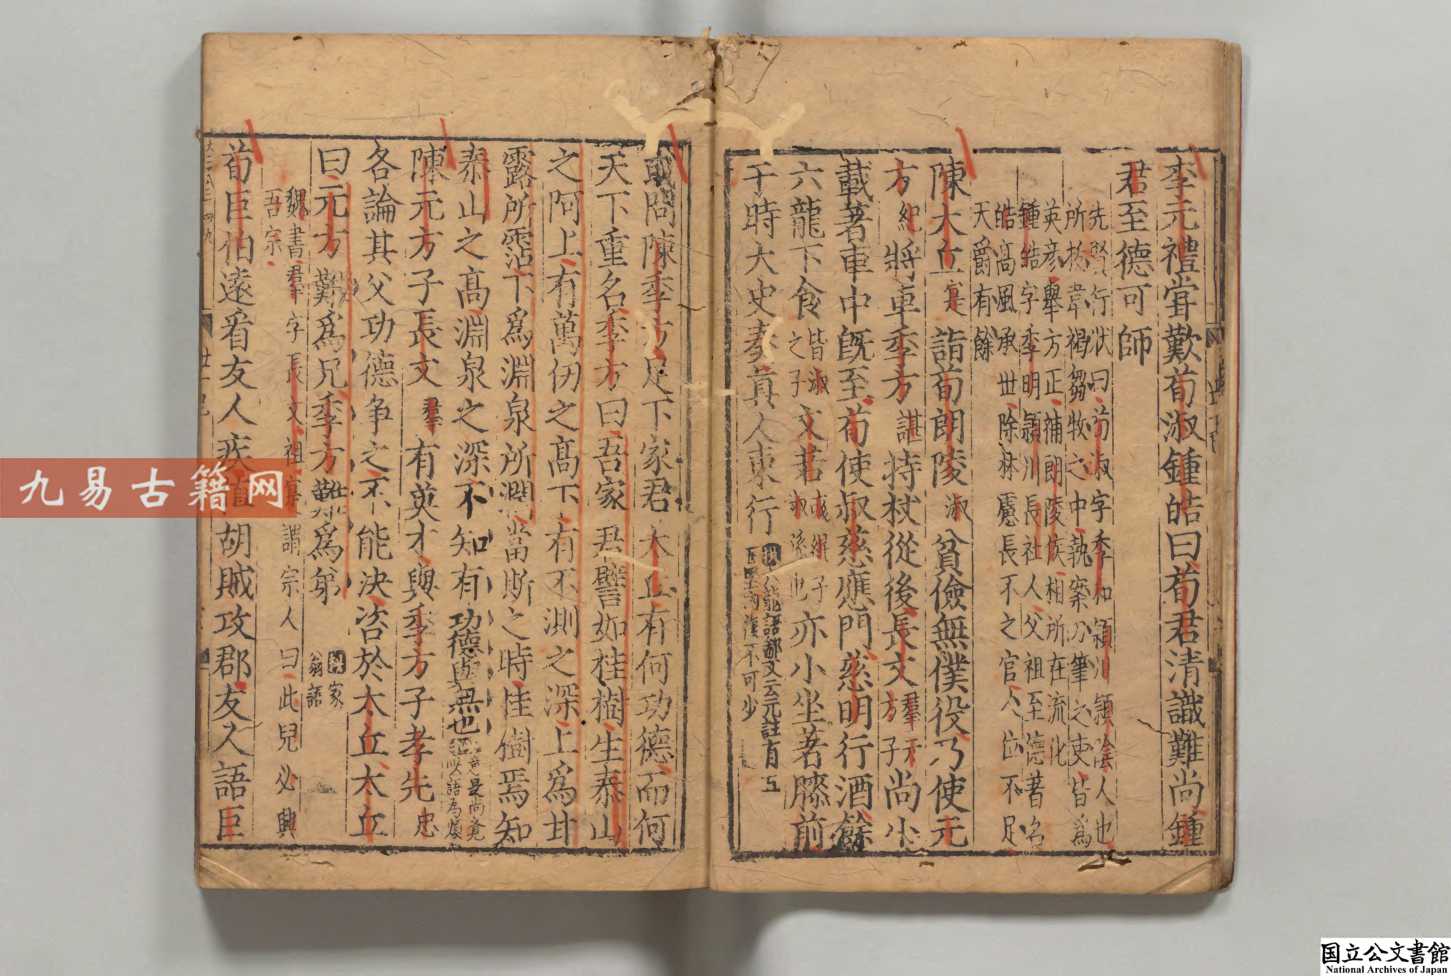 李元禮甞歎荀淑鍾皓曰荀君清識難尚鍾
君至德可師
先賢行狀曰荀淑字季和潁川潁陰人也
所拔韋褐芻牧之中執案刀筆之吏皆爲
英彦舉方正補朗陵侯相所在流化
鍾皓字季明潁川長社人父祖至德著名
皓高風承世除林慮長不之官人位不足
天爵有餘
陳太丘寔詣荀朗陵淑貧儉無僕役乃使元
方紀將車季方諶持杖從後長文羣方子尚小
載著車中旣至荀使叔慈應門慈明行酒餘
六龍下食皆淑之子文若彧緄子淑孫也亦小坐著膝前
于時太史奏真人東行
或問陳季方足下家君太丘有何功德而何
天下重名季方曰吾家君譬如桂樹生泰山
之阿上有萬仞之高下有不測之深上爲甘
露所霑下爲淵泉所潤當斯之時桂樹焉知
泰山之高淵泉之深不知有功德與無也
陳元方子長文羣有英才與季方子孝先忠
各論其父功德争之不能決咨於太丘太丘
曰元方難爲兄季方難爲弟
魏書羣字長文祖寔謂宗人曰此兒必興
吾宗
荀巨伯遠看友人疾值胡賊攻郡友人語巨
九易古籍网
国立公文書館
National Archives of Japan